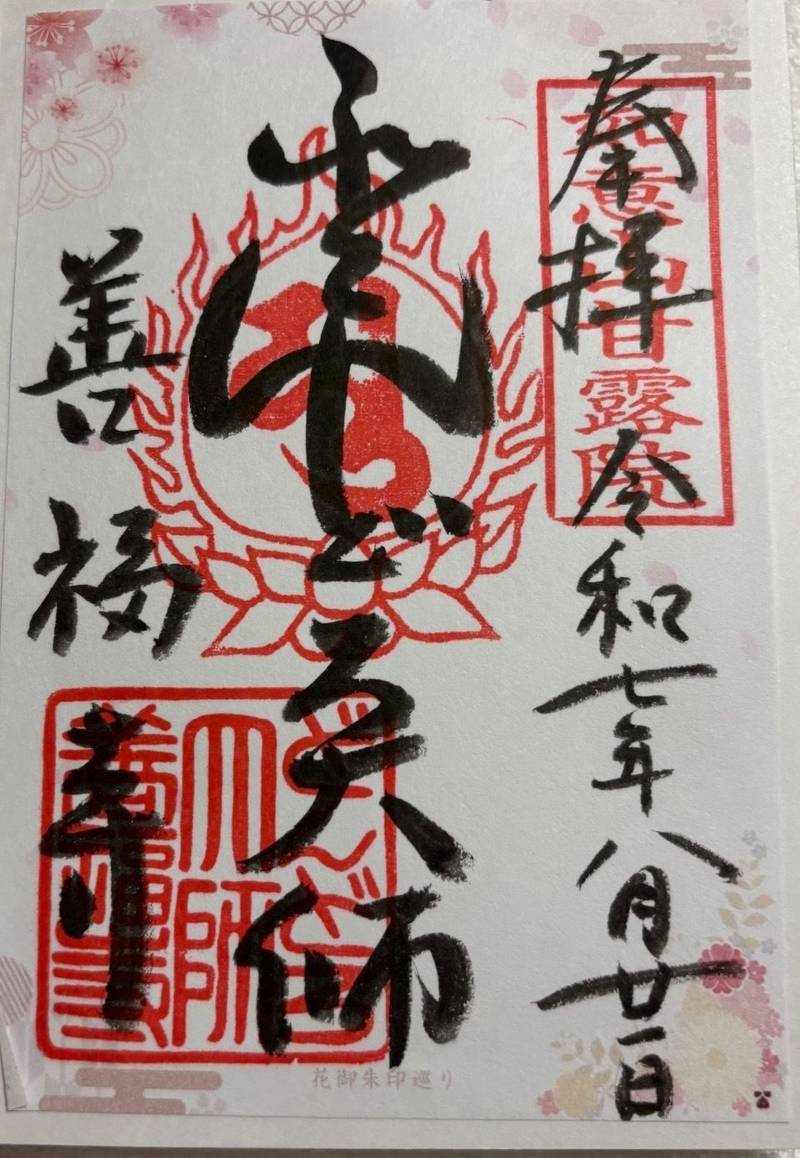 奉拝 令和七年八月廿一日
如意山甘露院
大師
善福寺
大師
花御朱印巡り